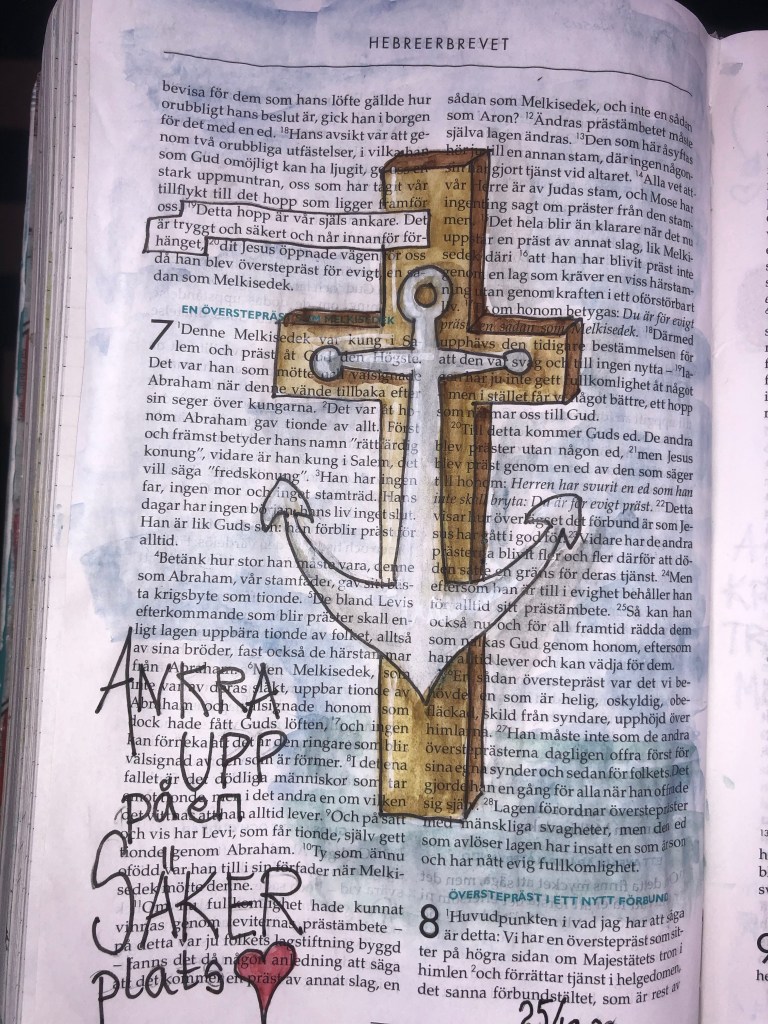 HEBREERBREVET
bevisa för dem som hans löfte gällde hur
orubbligt hans beslut är, gick han i borgen
för det med en ed. 18Hans avsikt var att ge-
nom två orubbliga utfästelser, i vilka han
som Gud omöjligt kan ha ljugit, ge oss en
stark uppmuntran, oss som har tagit vår
tillflykt till det hopp som ligger framför
oss. 19Detta hopp är vår själs ankare. Det
är tryggt och säkert och når innanför för-
hänget, 20dit Jesus öppnade vägen för oss
då han blev överstepräst för evigt, en så-
dan som Melkisedek.
EN ÖVERSTEPRÄST SOM MELKISEDEK
7 1Denne Melkisedek var kung i Sa-
lem och präst åt Gud den Högste.
Det var han som mötte och välsignade
Abraham när denne vände tillbaka efter
sin seger över kungarna. 2Det var åt ho-
nom Abraham gav tionde av allt. Först
och främst betyder hans namn "rättfärdig
konung", vidare är han kung i Salem, det
vill säga "fredskonung". 3Han har ingen
far, ingen mor och inget stamträd. Hans
dagar har ingen början, hans liv inget slut.
Han är lik Guds son: han förblir präst för
alltid.
4Betänk hur stor han måste vara, denne
som Abraham, vår stamfader, gav sitt bäs-
ta krigsbyte som tionde. 5De bland Levis
efterkommande som blir präster skall en-
ligt lagen uppbära tionde av folket, alltså
av sina bröder, fast också de härstammar
från Abraham. 6Men Melkisedek, som
inte var av deras släkt, uppbar tionde av
Abraham och välsignade honom som
dock hade fått Guds löften, 7och ingen
kan förneka att det är den ringare som blir
välsignad av den som är förmer. 8I det ena
fallet är det dödliga människor som tar
emot tionde, men i det andra en om vilken
det vittnas att han alltid lever. 9Och på sätt
och vis har Levi, som får tionde, själv gett
tionde genom Abraham. 10Ty som ännu
ofödd var han till i sin förfader när Melki-
sedek mötte denne.
11Om nu fullkomlighet hade kunnat
vinnas genom leviternas prästämbete –
på detta var ju folkets lagstiftning byggd
– fanns det då någon anledning att säga
att det kommer en präst av annat slag, en
sådan som Melkisedek, och inte en sådan
som Aron? 12Ändras prästämbetet måste
själva lagen ändras. 13Den som här åsyftas
hör ju till en annan stam, där ingen någon-
sin har gjort tjänst vid altaret. 14Alla vet att
vår Herre är av Judas stam, och Mose har
ingenting sagt om präster från den stam-
men. 15Det hela blir än klarare när det nu
uppstår en präst av annat slag, lik Melki-
sedek däri 16att han har blivit präst inte
genom en lag som kräver en viss härstam-
ning utan genom kraften i ett oförstörbart
liv. 17Ty om honom betygas: Du är för evigt
präst, en sådan som Melkisedek. 18Därmed
upphävs den tidigare bestämmelsen för
att den var svag och till ingen nytta – 19la-
gen har ju inte gett fullkomlighet åt något
– men i stället får vi något bättre, ett hopp
som närmar oss till Gud.
20Till detta kommer Guds ed. De andra
blev präster utan någon ed, 21men Jesus
blev präst genom en ed av den som säger
till honom: Herren har svurit en ed som han
inte skall bryta: Du är för evigt präst. 22Detta
visar hur överlägset det förbund är som Je-
sus har gått i god för. 23Vidare har de andra
prästerna blivit fler och fler därför att dö-
den satte en gräns för deras tjänst. 24Men
eftersom han är till i evighet behåller han
för alltid sitt prästämbete. 25Så kan han
också nu och för all framtid rädda dem
som nalkas Gud genom honom, eftersom
han alltid lever och kan vädja för dem.
26En sådan överstepräst var det vi be-
hövde: en som är helig, oskyldig, obe-
fläckad, skild från syndare, upphöjd över
himlarna. 27Han måste inte som de andra
översteprästerna dagligen offra först för
sina egna synder och sedan för folkets. Det
gjorde han en gång för alla när han offrade
sig själv. 28Lagen förordnar överstepräster
med mänskliga svagheter, men den ed
som avlöser lagen har insatt en som är son
och har nått evig fullkomlighet.
ÖVERSTEPRÄST I ETT NYTT FÖRBUND
8 1Huvudpunkten i vad jag har att säga
är detta: Vi har en överstepräst som sit-
ter på högra sidan om Majestätets tron i
himlen 2och förrättar tjänst i helgedomen,
det sanna förbundstältet, som är rest av
ANKRA
UPP
på en
SÄKER
plats